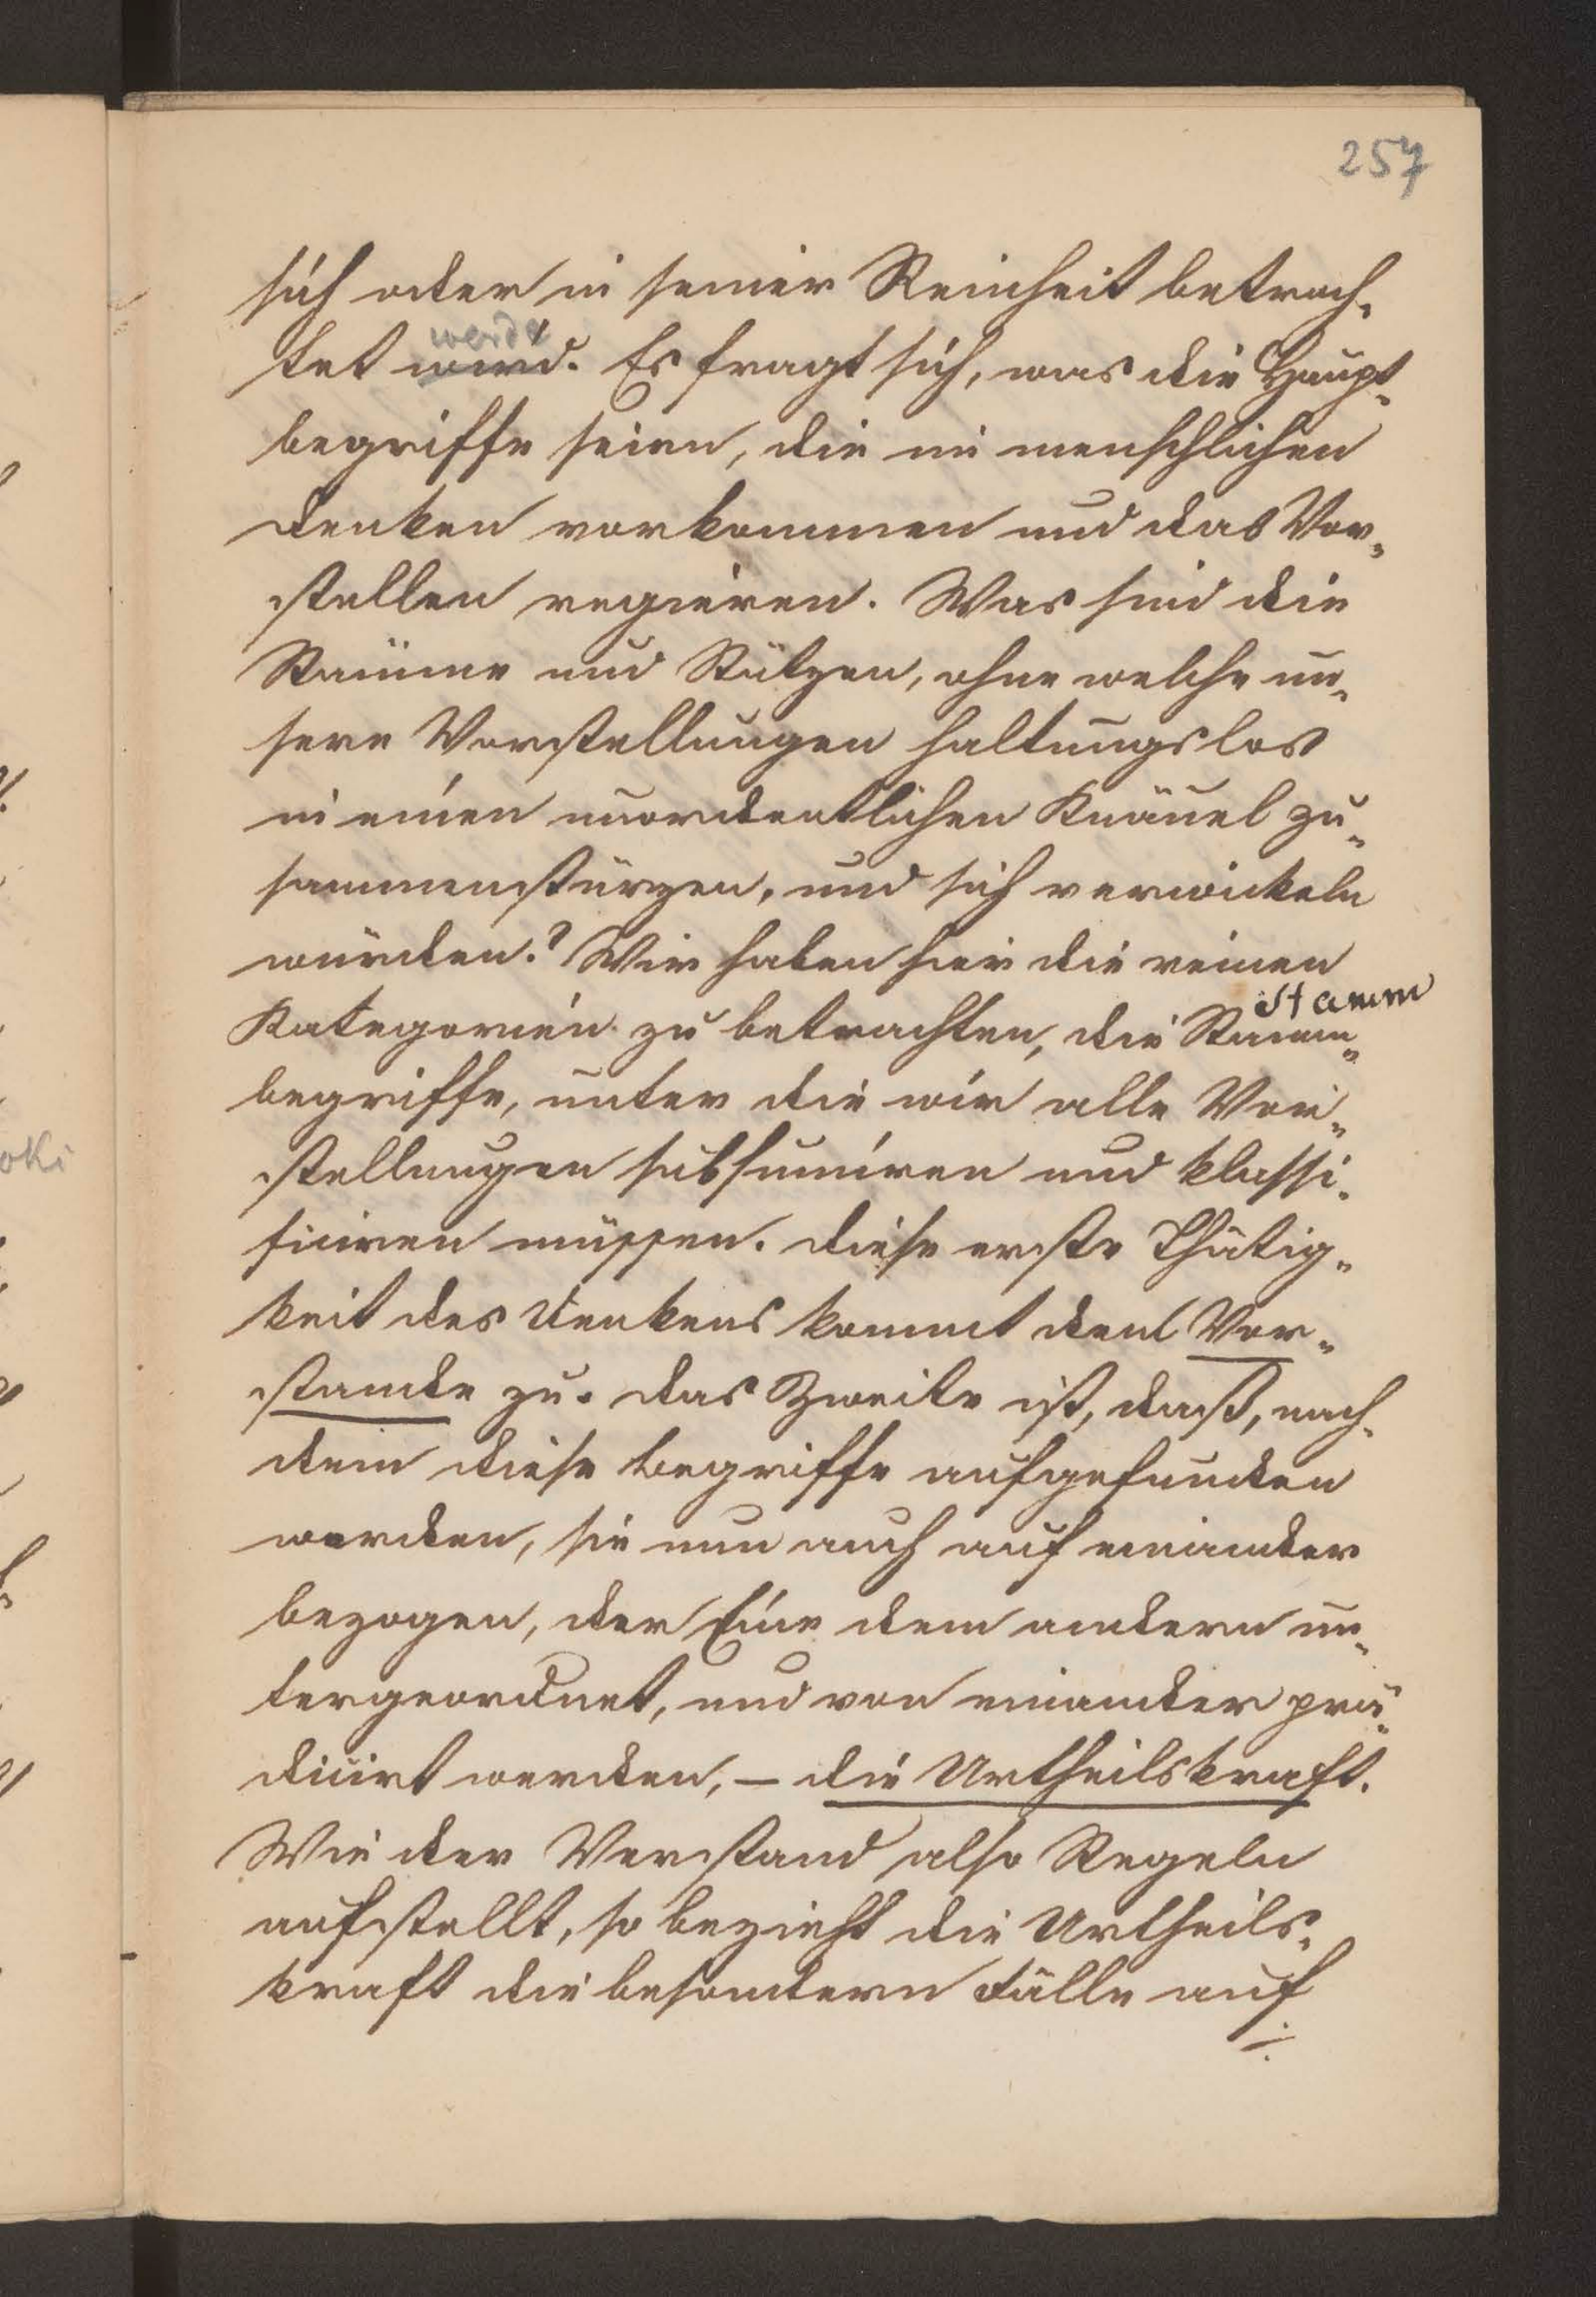 257
sich oder in seiner Reinheit betrach-
werde
tet wird. Es fragt sich, was die Haupt-
begriffe seien, die im menschlichen
Denken vorkommen und das Vor-
stellen regieren. Was sind die
Stämme und Stützen, ohne welche un-
sere Vorstellungen haltungslos
in einen unordentlichen Knäuel zu-
sammenstürzen, und sich verwickeln
würden? Wir haben hier die reinen
Stamm
Kategorien zu betrachten, die Stamm-
begriffe, unter die wir alle Vor-
stellungen subsumiren und klassi-
ficiren müssen. Diese erste Thätig-
keit des Denkens kommt dem Ver-
stande zu. Das Zweite ist, daß, nach-
dem diese Begriffe aufgefunden
worden, sie nun auch auf einander
bezogen, der Eine dem andern un-
tergeordnet, und von einander prä-
dicirt werden, – die Urtheilskraft.
Wie der Verstand also Regeln
aufstellt, so bezieht die Urtheils-
kraft die besondern Fälle auf